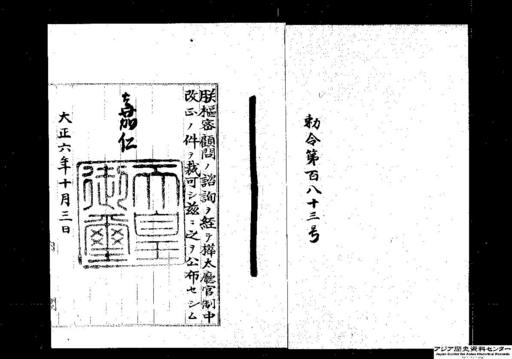 勅令第百八十三号
朕樞密顧問ノ諮詢ヲ経テ樺太廳官制中
改正ノ件ヲ裁可シ茲ニ之ヲ公布セシム
嘉仁
天皇
御璽
大正六年十月三日
アジア歴史資料センター
Japan Center for Asian Historical Records